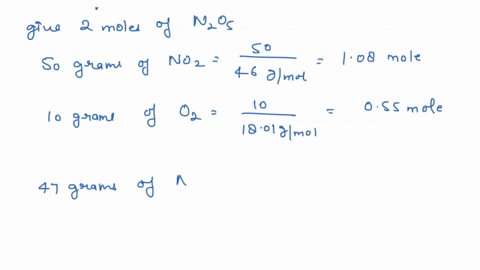 give 2 moles of N₂O₅
50 grams of NO₂ = 50 / 46 g/mol = 1.08 mole
10 grams of O₂ = 10 / 18.01 g/mol = 0.55 mole
47 grams of